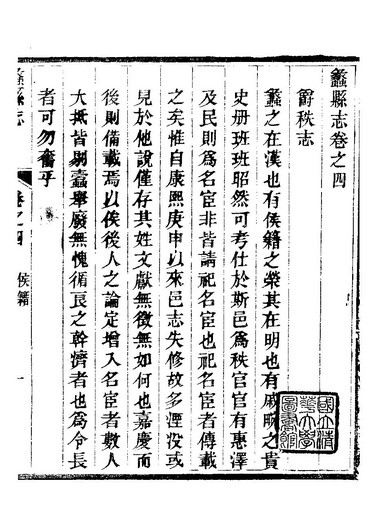 蠡縣志卷之四
爵秩志
蠡之在漢也有侯籍之榮其在明也有戚畹之貴
史册班班昭然可考仕於斯邑為秩官官有惠澤
及民則為名宦非皆請祀名宦也祀名宦者傳載
之矣惟自康熙庚申以來邑志失修故多湮没或
見於他說僅存其姓文獻無徵無如何也嘉慶而
後則備載焉以俟後人之論定增入名宦者數人
大抵皆剔蠹舉廢無愧循良之幹濟者也為令長
者可勿奮乎
蠡縣志
卷之四
侯籍
一
國立清
華大學
圖書館